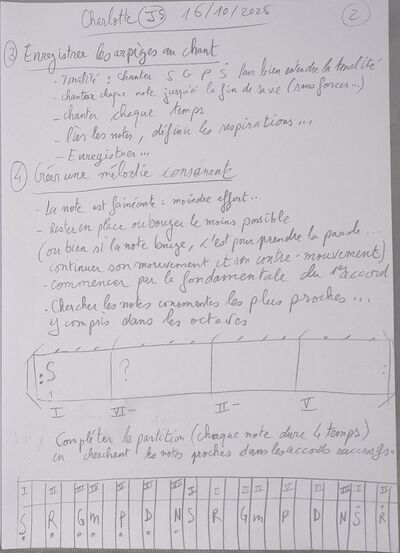 Charlotte JS 16/10/2025 2
3 Enregistrer les arpèges au chant
- Tonalité : chanter S G P Ṡ Pour bien entendre la tonalité
- chanter chaque note jusqu'à la fin de sa vie (sans forcer...)
- chanter chaque temps
- lier les notes, définir les respirations...
- Enregistrer...
4 Créer une mélodie consonante
- La note est fainéante = moindre effort...
- Rester en place ou bouger le moins possible
(ou bien si la note bouge, c'est pour prendre la parole...
continuer son mouvement et son contre-mouvement)
- commencer par le fondamentale du 1er accord
- Chercher les notes consonantes les plus proches...
y compris dans les octaves
S ?
1
I VI- II- V
Compléter la partition (chaque note dure 4 temps)
en cherchant les notes proches dans les accords successifs.
S R G m P D N S R G m P D N Ṡ Ṙ